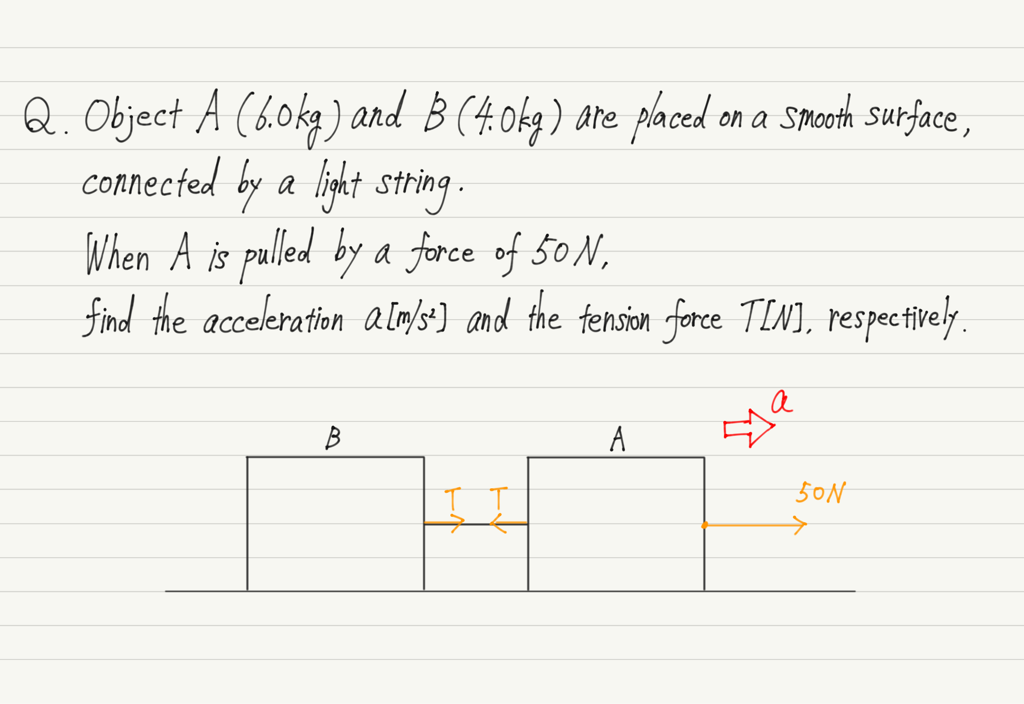 Q. Object A (6.0kg) and B (4.0kg) are placed on a smooth surface,
connected by a light string.
When A is pulled by a force of 50N,
find the acceleration a[m/s²] and the tension force T[N], respectively.
a
B
A
T T
50N